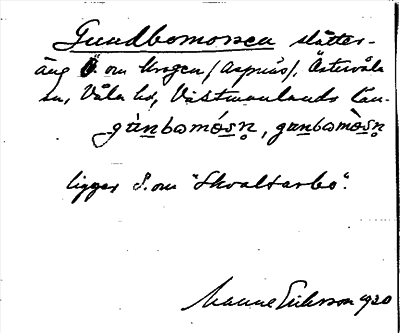 Gundbomossen slåtter-
äng Ö. om Krogen (Aspnäs), Östervåla
sn, Våla hd, Västmanlands län.
gùnbomósn̥, gunbomòsn̥
ligger S. om "Skvaltarbo".
Manne Eriksson 1920